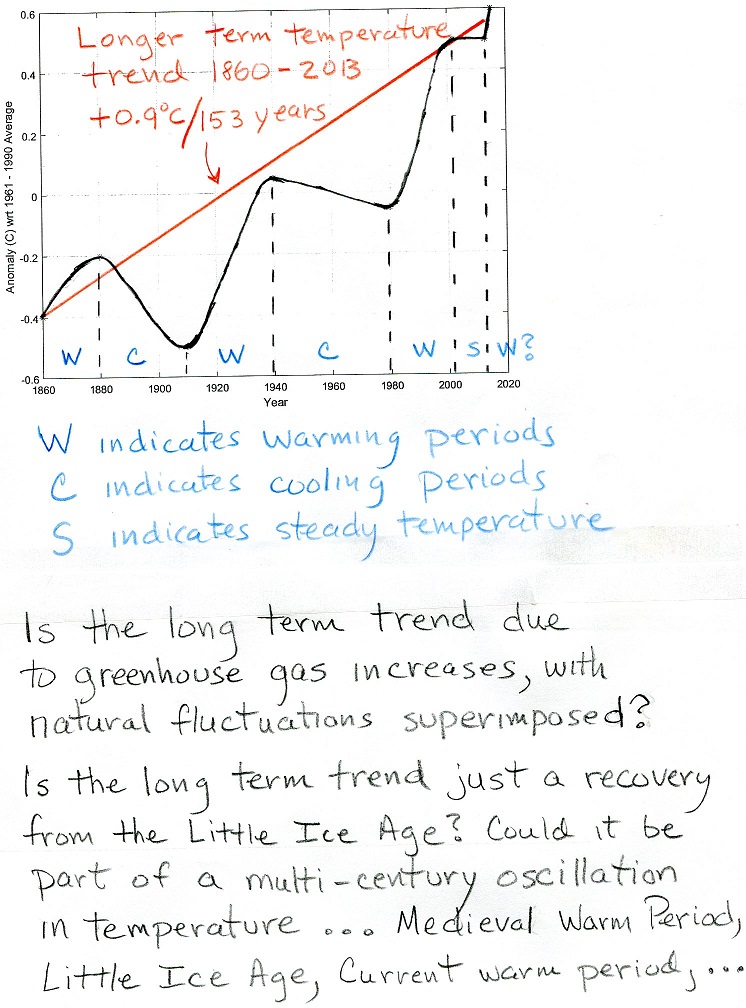 Longer term temperature
trend 1860-2013
+0.9°C/153 years
0.6
0.4
0.2
0
-0.2
-0.4
-0.6
Anomaly (C) wrt 1961 - 1990 Average
W C W C W S W?
1860 1880 1900 1920 1940 1960 1980 2000 2020
Year
W indicates warming periods
C indicates cooling periods
S indicates steady temperature
Is the long term trend due
to greenhouse gas increases, with
natural fluctuations superimposed?
Is the long term trend just a recovery
from the Little Ice Age? Could it be
part of a multi-century oscillation
in temperature ... Medieval Warm Period,
Little Ice Age, Current warm period, ...